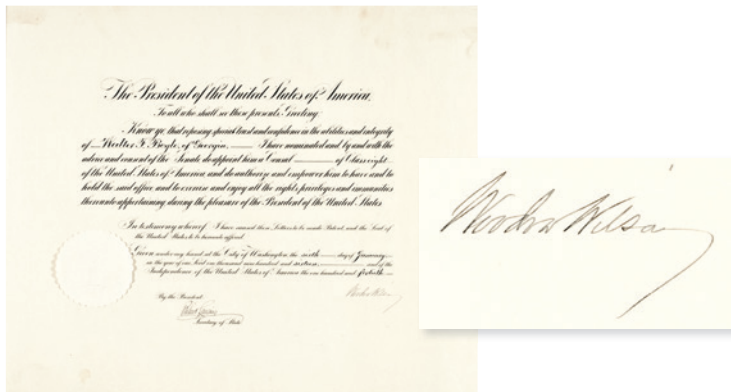 The President of the United States of America.
To all who shall see these presents, Greeting:
Know ye, that reposing special trust and confidence in the abilities and integrity
of Walter F. Boyle, of Georgia, I have nominated and by and with the
advice and consent of the Senate do appoint him a Consul of Class eight
of the United States of America, and do authorize and empower him to have and to
hold the said office and to exercise and enjoy all the rights, privileges and immunities
thereunto appertaining during the pleasure of the President of the United States.
In testimony whereof, I have caused these Letters to be made Patent and the Seal of
the United States to be hereunto affixed.
Given under my hand at the City of Washington the sixth day of January
in the year of our Lord one thousand nine hundred and sixteen, and of the
Independence of the United States of America the one hundred and fortieth
Woodrow Wilson
By the President:
Robert Lansing
Secretary of State.
Woodrow Wilson